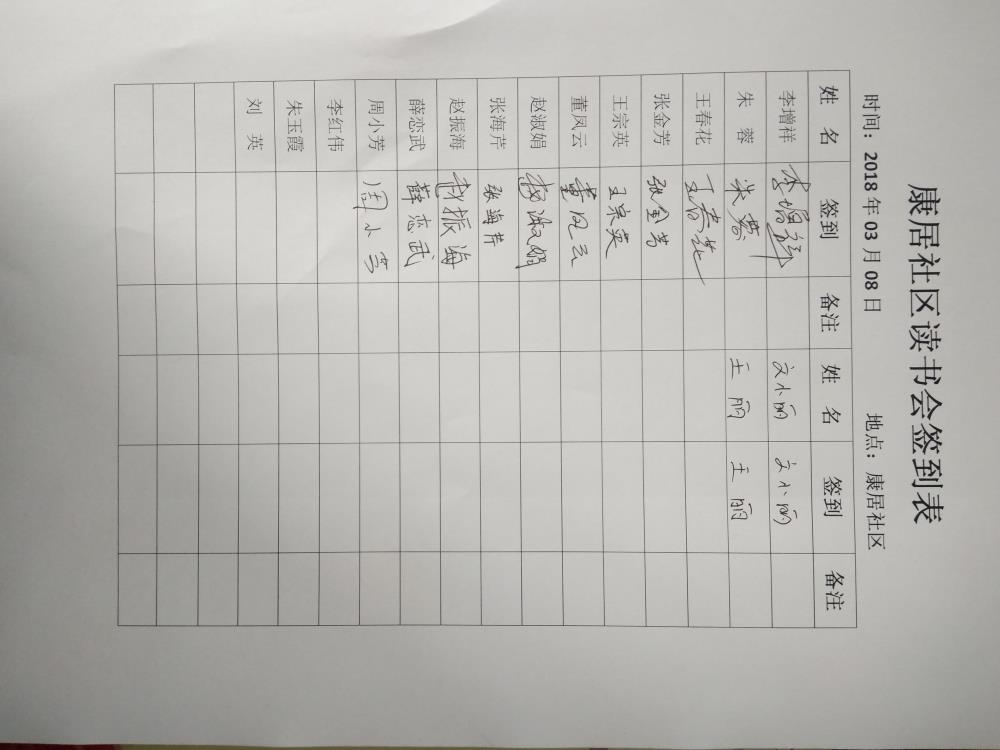 康居社区读书会签到表
时间：2018年03月08日 地点：康居社区
姓 名 签到 备注 姓 名 签到 备注
李增祥 李增祥 文小丽 文小丽
朱 蓉 朱蓉 王丽 王丽
王春花 王春花
张金芳 张金芳
王宗英 王宗英
董凤云 董凤云
赵淑娟 赵淑娟
张海芹 张海芹
赵振海 赵振海
薛恋武 薛恋武
周小芳 周小芳
李红伟
朱玉霞
刘 英